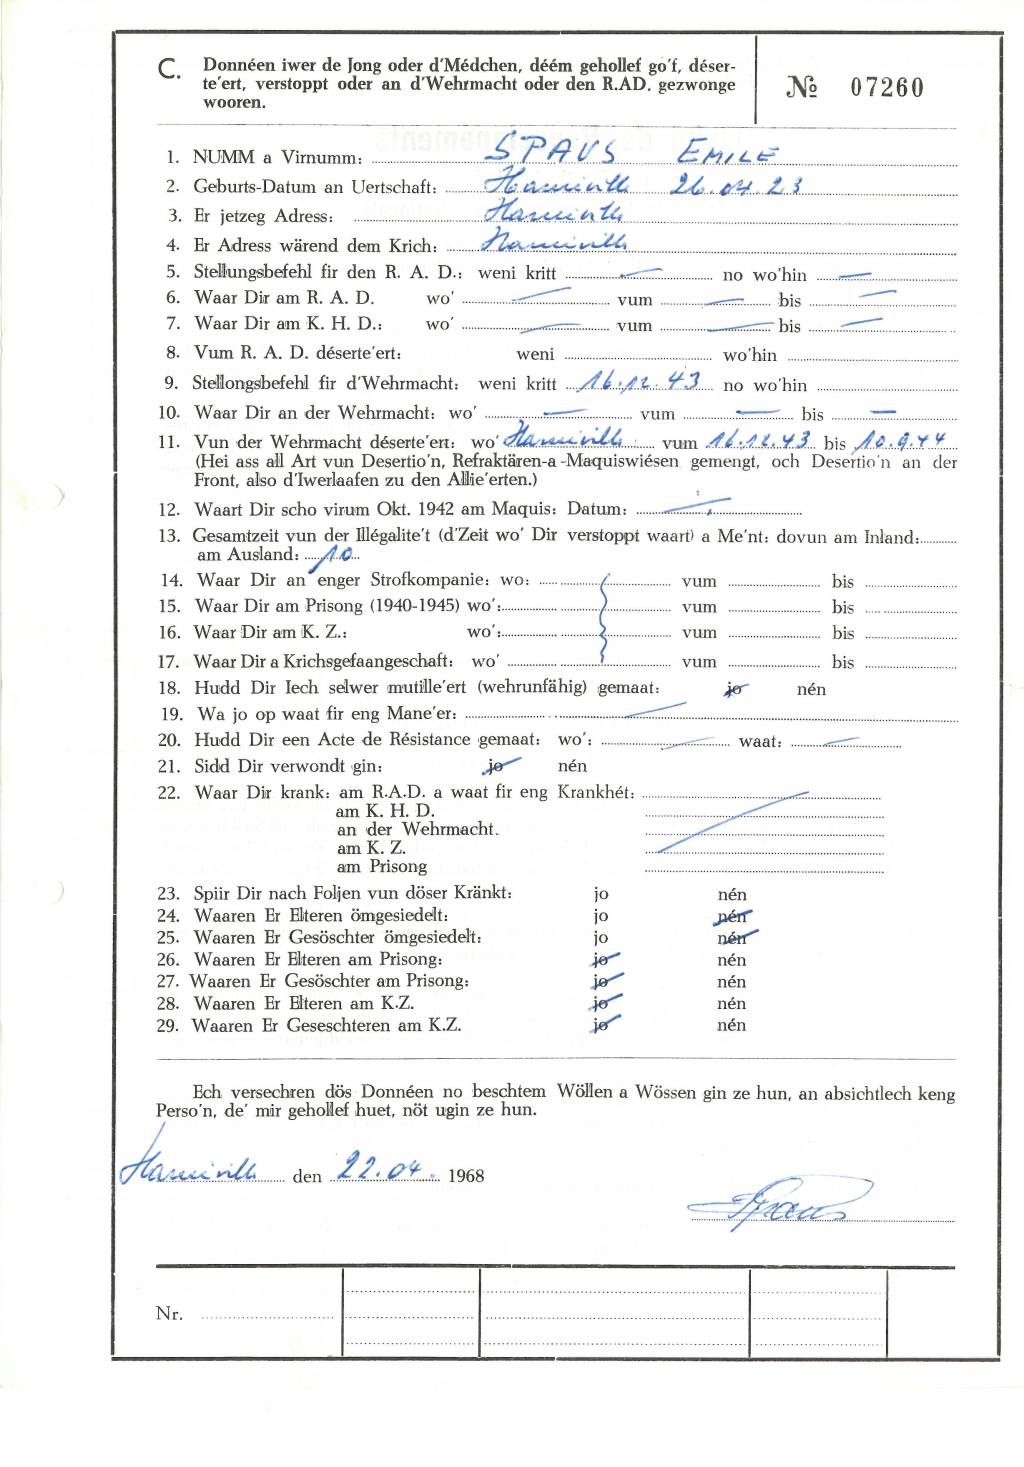 C. Donnéen iwer de Jong oder d'Médchen, déém gehollef go'f, déser-
te'ert, verstoppt oder an d'Wehrmacht oder den R.AD. gezwonge
wooren.
№ 07260
1. NUMM a Virnumm: SPAUS EMILE
2. Geburts-Datum an Uertschaft: Hamiville 26.04.23
3. Er jetzeg Adress: Hamiville
4. Er Adress wärend dem Krich: Hamiville
5. Stellungsbefehl fir den R. A. D.: weni kritt — no wo'hin —
6. Waar Dir am R. A. D. wo' — vum — bis —
7. Waar Dir am K. H. D.: wo' — vum — bis —
8. Vum R. A. D. déserte'ert: weni wo'hin
9. Stellongsbefehl fir d'Wehrmacht: weni kritt 16.12.43 no wo'hin
10. Waar Dir an der Wehrmacht: wo' — vum — bis —
11. Vun der Wehrmacht déserte'ert: wo' Hamiville vum 16.12.43 bis 10.9.44
(Hei ass all Art vun Desertio'n, Refraktären-a-Maquiswiésen gemengt, och Desertio'n an der
Front, also d'Iwerlaafen zu den Allie'erten.)
12. Waart Dir scho virum Okt. 1942 am Maquis: Datum: —
13. Gesamtzeit vun der Illégalite't (d'Zeit wo' Dir verstoppt waart) a Me'nt: dovun am Inland:
am Ausland: 10
14. Waar Dir an enger Strofkompanie: wo: vum bis
15. Waar Dir am Prisong (1940-1945) wo': vum bis
16. Waar Dir am K. Z.: wo': vum bis
17. Waar Dir a Krichsgefaangeschaft: wo' vum bis
18. Hudd Dir Iech selwer mutille'ert (wehrunfähig) gemaat: jo nén
19. Wa jo op waat fir eng Mane'er: —
20. Hudd Dir een Acte de Résistance gemaat: wo': — waat: —
21. Sidd Dir verwondt gin: jo nén
22. Waar Dir krank: am R.A.D. a waat fir eng Krankhét:
am K. H. D.
an der Wehrmacht.
am K. Z.
am Prisong
23. Spiir Dir nach Foljen vun döser Kränkt: jo nén
24. Waaren Er Elteren ömgesiedelt: jo nén
25. Waaren Er Gesöschter ömgesiedelt: jo nén
26. Waaren Er Elteren am Prisong: jo nén
27. Waaren Er Gesöschter am Prisong: jo nén
28. Waaren Er Elteren am K.Z. jo nén
29. Waaren Er Geseschteren am K.Z. jo nén
Ech versechren dös Donnéen no beschtem Wöllen a Wössen gin ze hun, an absichtlech keng
Perso'n, de' mir gehollef huet, nöt ugin ze hun.
Hamiville den 22.04. 1968
Spaus
Nr.